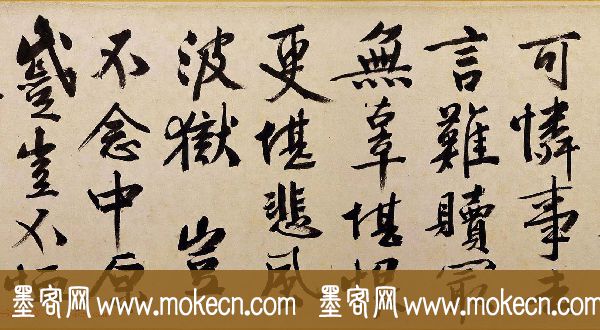 可憐事
言難贖
無辜堪
更堪悲風
波獄 豈
不念中原
蹙豈不
墨客网 www.mokecn.com 墨客网 www.mokecn.com